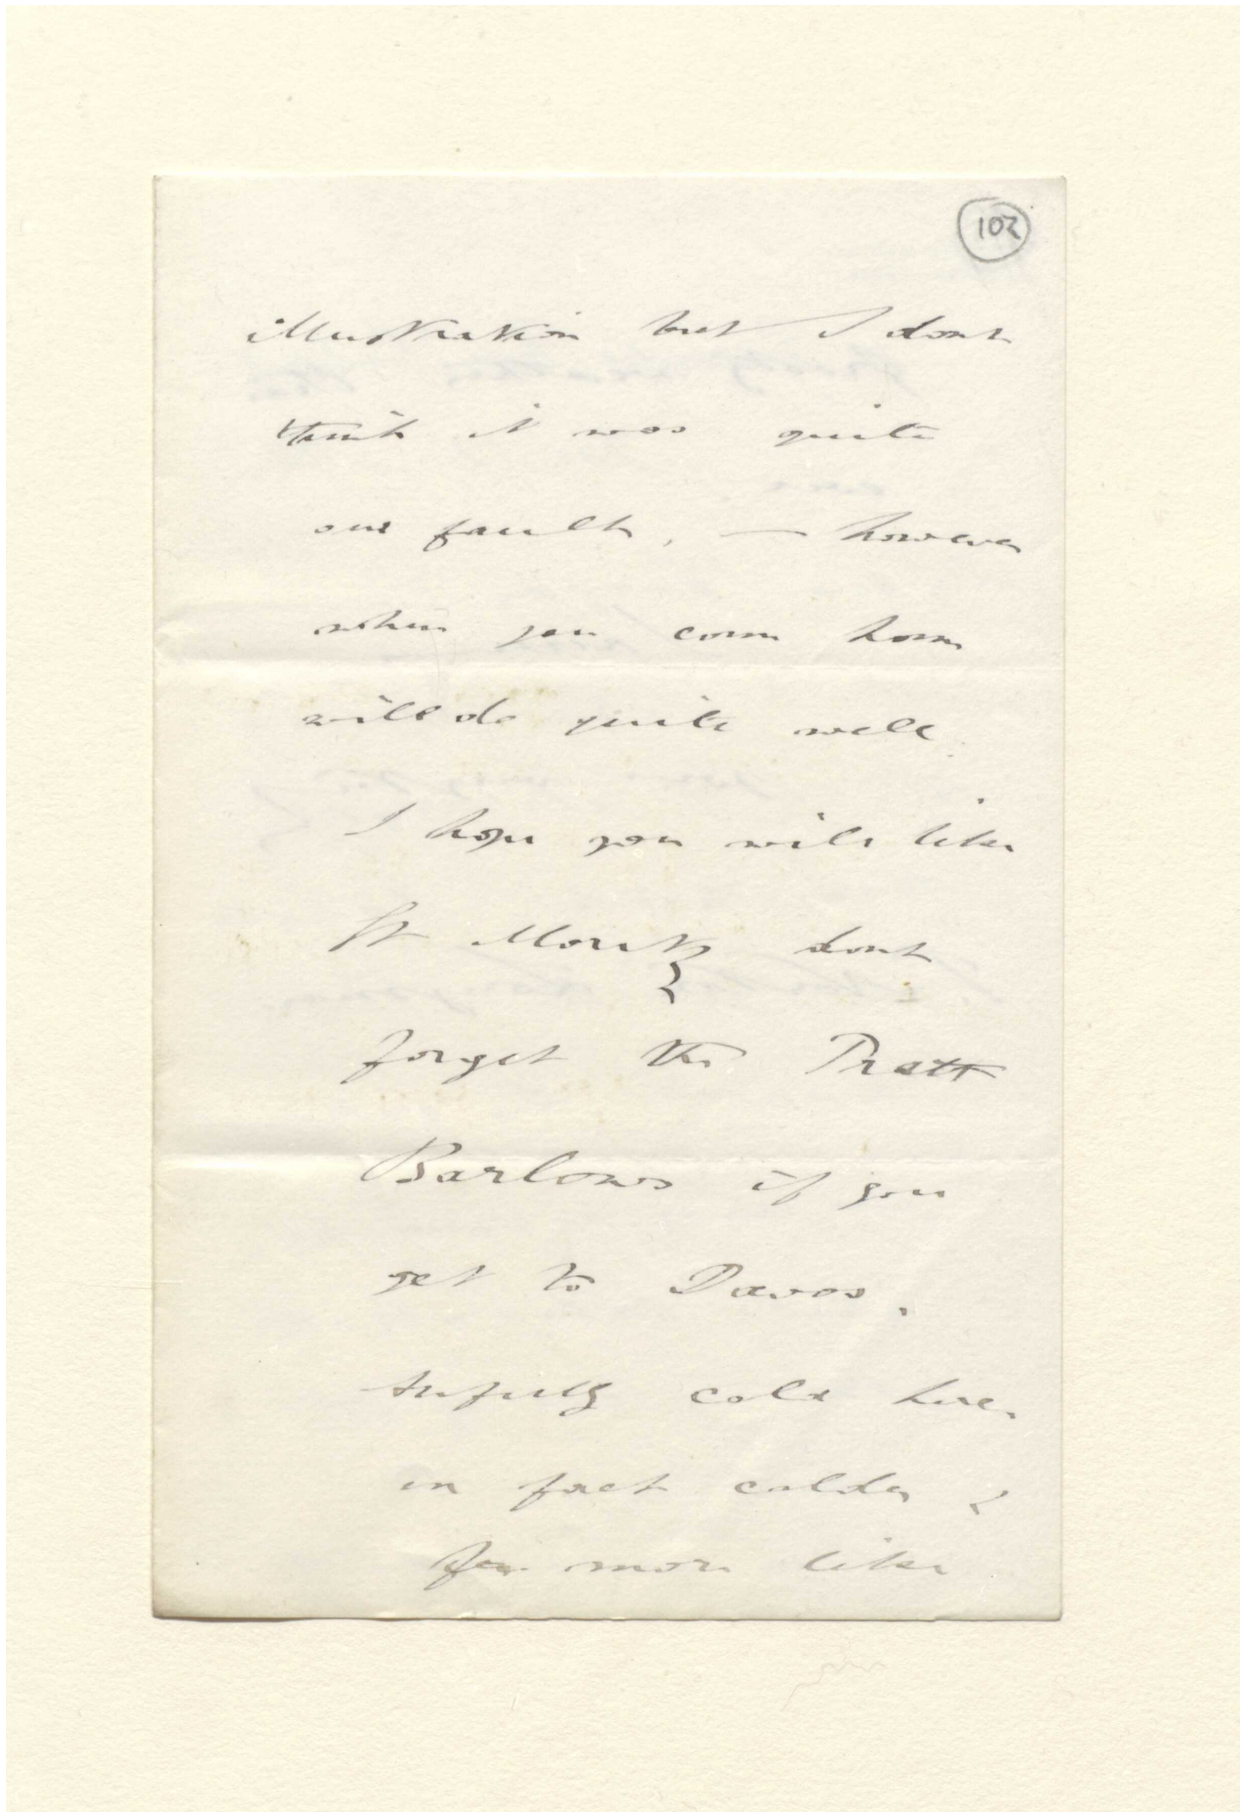 102
illustration but I dont
think it was quite
our fault, — however
when you come home
will do quite well.
I hope you will like
St Moritz dont
forget the Pratt
Barlows if you
get to Davos.
Awfully cold here,
in fact colder &
far more like